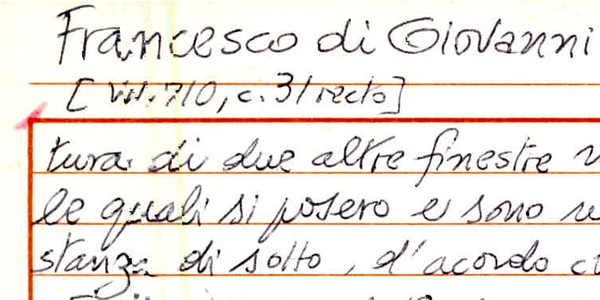 Francesco di Giovanni
[ VII.710, c.31 recto]
tura di due altre finestre
le quali si posero e sono
stanza di sotto, d'acordo